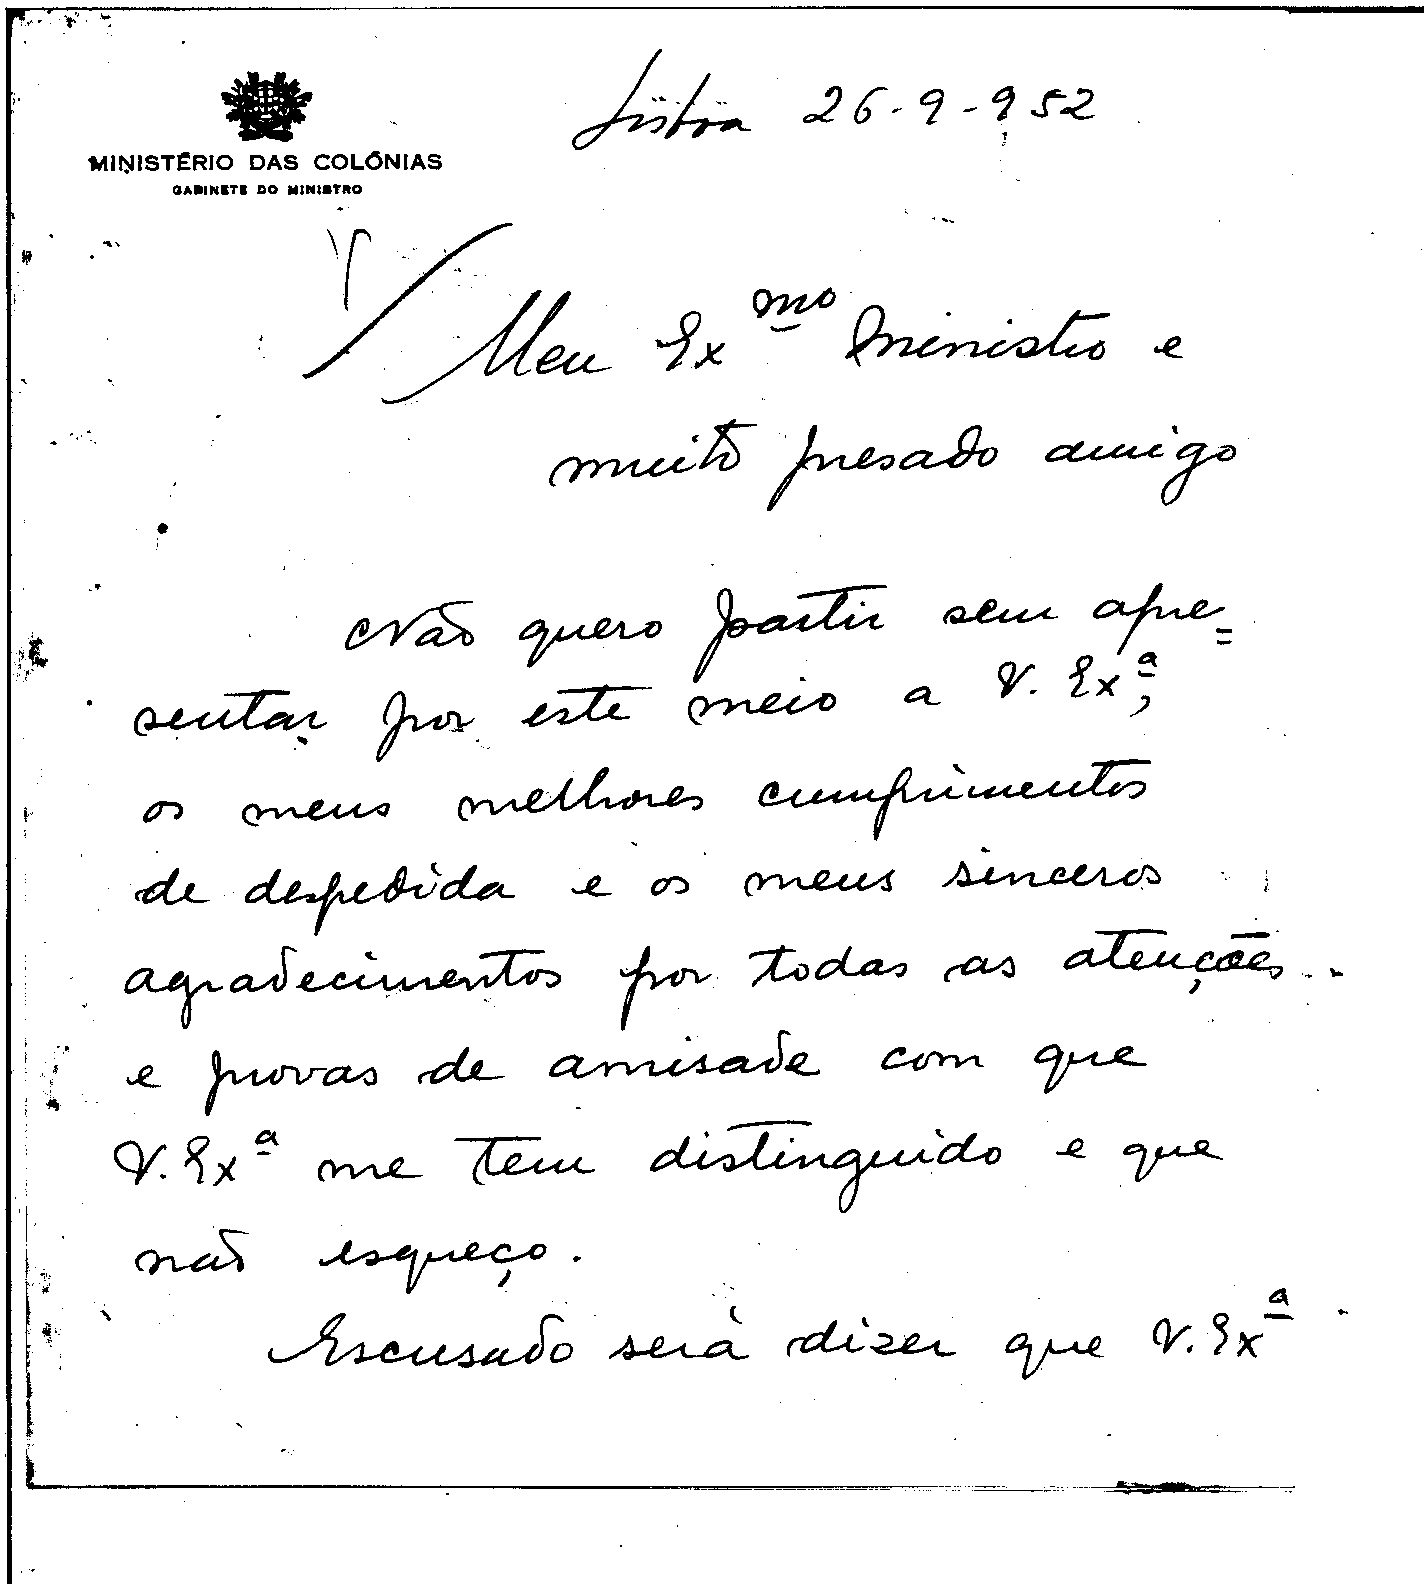 Lisboa 26-9-952
MINISTÉRIO DAS COLÓNIAS
GABINETE DO MINISTRO
Meu Exmo Ministro e
muito presado amigo
Não quero partir sem apre=
sentar por este meio a V. Exª,
os meus melhores cumprimentos
de despedida e os meus sinceros
agradecimentos por todas as atenções
e provas de amisade com que
V. Exª me tem distinguido e que
não esqueço.
Escusado será dizer que V. Exª